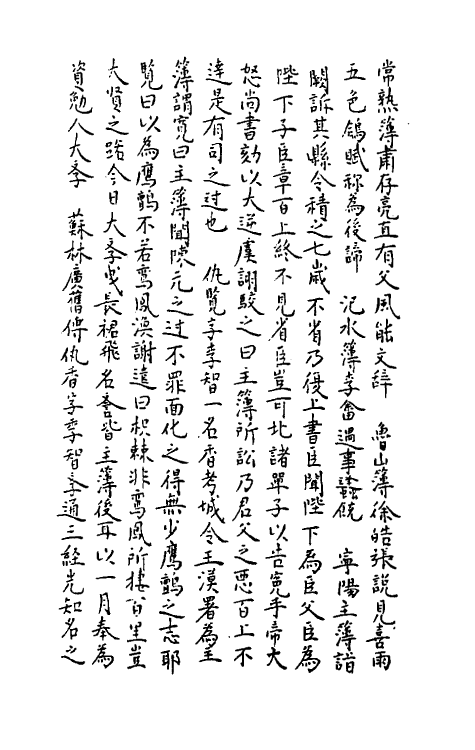 常熟簿肅存亮直有父風能文辭　魯山簿徐皓張說見喜雨
五色鴿賦称為後諦　汜水簿李畬遇事蠭銳　寧陽主簿詣
闕訴其縣令積之七歲不省乃復上書臣聞陛下為臣父臣為
陛下子臣章百上終不見省臣豈可北諸單于以告寃乎帝大
怒尚書劾以大逆虞詡駮之曰主簿所訟乃君父之怨百上不
達是有司之过也　仇覽字季智一名香考城令王渙署為主
簿謂寬曰主簿聞陳元之过不罪面化之得無少鷹鸇之志耶
覽曰以為鷹鸇不若鸾鳳渙謝遠曰枳棘非鸾鳳所棲百里豈
大贤之路今日大孝曳長裾飛名誉皆主簿後耳以一月奉為
資勉入大孝　蘇林廣舊傳仇香字季智孝通三經先知名之